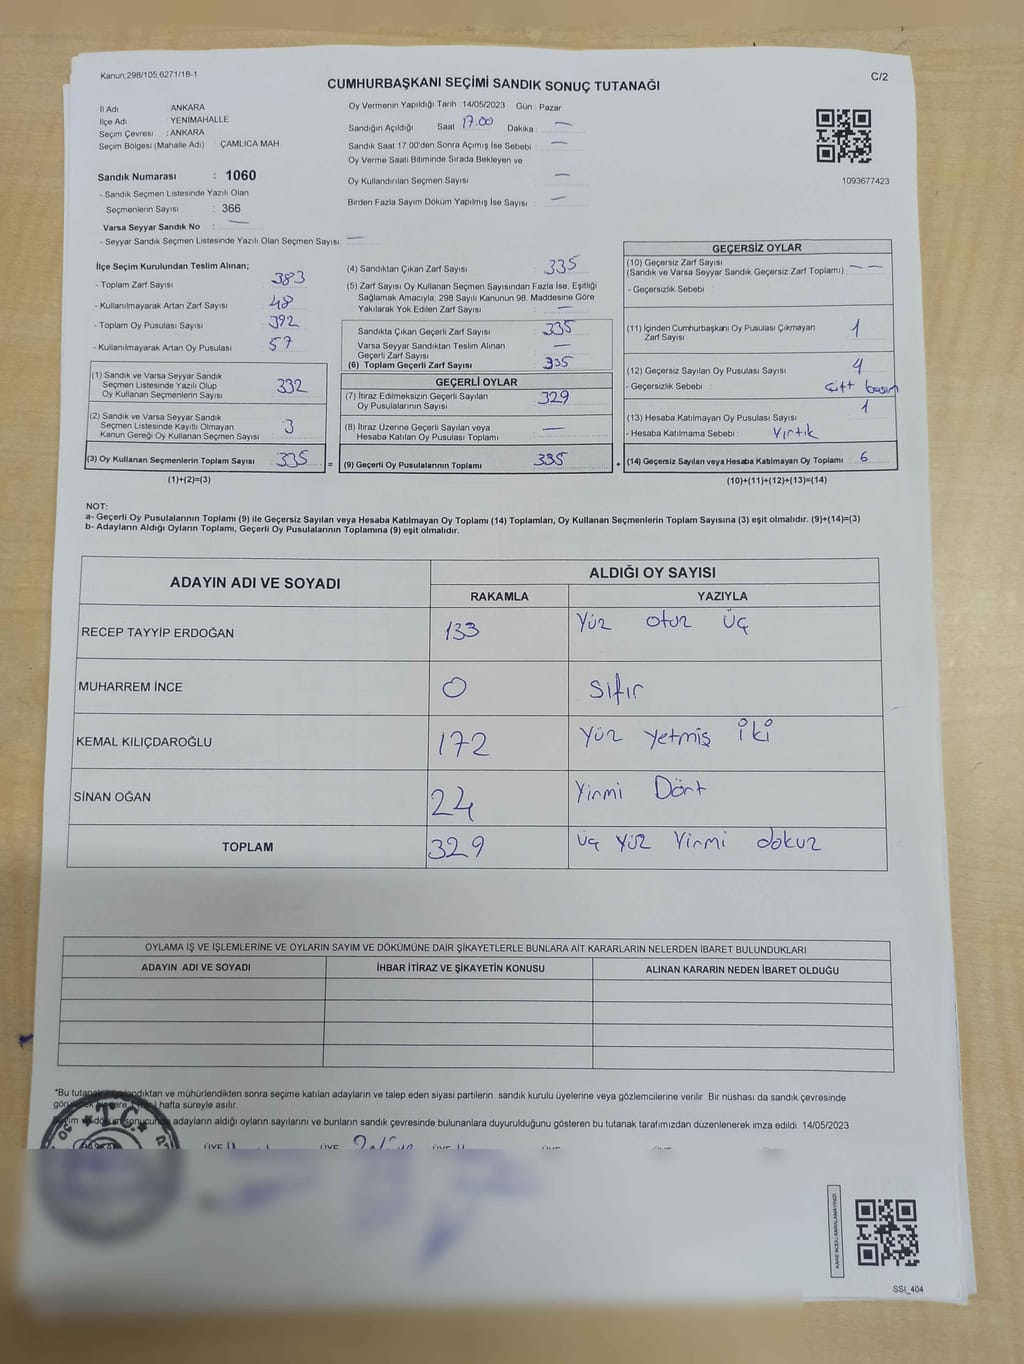 Kanun;298/105,6271/18-1
C/2
CUMHURBAŞKANI SEÇİMİ SANDIK SONUÇ TUTANAĞI
İl Adı ANKARA
İlçe Adı YENİMAHALLE
Seçim Çevresi : ANKARA
Seçim Bölgesi (Mahalle Adı) : ÇAMLICA MAH.
Oy Vermenin Yapıldığı Tarih : 14/05/2023 Gün : Pazar
Sandığın Açıldığı Saat 17.00 Dakika : —
Sandık Saat 17.00'den Sonra Açımış İse Sebebi : —
Oy Verme Saati Bitiminde Sırada Bekleyen ve
Oy Kullandırılan Seçmen Sayısı —
Birden Fazla Sayım Döküm Yapılmış İse Sayısı : —
1093677423
Sandık Numarası : 1060
- Sandık Seçmen Listesinde Yazılı Olan
Seçmenlerin Sayısı : 366
Varsa Seyyar Sandık No : —
- Seyyar Sandık Seçmen Listesinde Yazılı Olan Seçmen Sayısı: —
İlçe Seçim Kurulundan Teslim Alınan;
- Toplam Zarf Sayısı : 383
- Kullanılmayarak Artan Zarf Sayısı : 48
- Toplam Oy Pusulası Sayısı : 392
- Kullanılmayarak Artan Oy Pusulası : 57
(1) Sandık ve Varsa Seyyar Sandık
Seçmen Listesinde Yazılı Olup
Oy Kullanan Seçmenlerin Sayısı : 332
(2) Sandık ve Varsa Seyyar Sandık
Seçmen Listesinde Kayıtlı Olmayan
Kanun Gereği Oy Kullanan Seçmen Sayısı : 3
(3) Oy Kullanan Seçmenlerin Toplam Sayısı : 335
(1)+(2)=(3)
(4) Sandıktan Çıkan Zarf Sayısı : 335
(5) Zarf Sayısı Oy Kullanan Seçmen Sayısından Fazla İse, Eşitliği
Sağlamak Amacıyla, 298 Sayılı Kanunun 98. Maddesine Göre
Yakılarak Yok Edilen Zarf Sayısı : —
Sandıkta Çıkan Geçerli Zarf Sayısı : 335
Varsa Seyyar Sandıktan Teslim Alınan
Geçerli Zarf Sayısı : —
(6) Toplam Geçerli Zarf Sayısı : 335
GEÇERLİ OYLAR
(7) İtiraz Edilmeksizin Geçerli Sayılan
Oy Pusulalarının Sayısı : 329
(8) İtiraz Üzerine Geçerli Sayılan veya
Hesaba Katılan Oy Pusulası Toplamı : —
= (9) Geçerli Oy Pusulalarının Toplamı : 335
GEÇERSİZ OYLAR
(10) Geçersiz Zarf Sayısı
(Sandık ve Varsa Seyyar Sandık Geçersiz Zarf Toplamı) : — —
- Geçersizlik Sebebi :
(11) İçinden Cumhurbaşkanı Oy Pusulası Çıkmayan
Zarf Sayısı : 1
(12) Geçersiz Sayılan Oy Pusulası Sayısı : 4
- Geçersizlik Sebebi : Çift basım
(13) Hesaba Katılmayan Oy Pusulası Sayısı : 1
- Hesaba Katılmama Sebebi : Yırtık
+ (14) Geçersiz Sayılan veya Hesaba Katılmayan Oy Toplamı : 6
(10)+(11)+(12)+(13)=(14)
NOT:
a- Geçerli Oy Pusulalarının Toplamı (9) ile Geçersiz Sayılan veya Hesaba Katılmayan Oy Toplamı (14) Toplamları, Oy Kullanan Seçmenlerin Toplam Sayısına (3) eşit olmalıdır. (9)+(14)=(3)
b- Adayların Aldığı Oyların Toplamı, Geçerli Oy Pusulalarının Toplamına (9) eşit olmalıdır.
ADAYIN ADI VE SOYADI ALDIĞI OY SAYISI
RAKAMLA YAZIYLA
RECEP TAYYİP ERDOĞAN 133 Yüz otuz üç
MUHARREM İNCE 0 sıfır
KEMAL KILIÇDAROĞLU 172 Yüz yetmiş iki
SİNAN OĞAN 24 Yirmi Dört
TOPLAM 329 üç yüz Yirmi dokuz
OYLAMA İŞ VE İŞLEMLERİNE VE OYLARIN SAYIM VE DÖKÜMÜNE DAİR ŞİKAYETLERLE BUNLARA AİT KARARLARIN NELERDEN İBARET BULUNDUKLARI
ADAYIN ADI VE SOYADI İHBAR İTİRAZ VE ŞİKAYETİN KONUSU ALINAN KARARIN NEDEN İBARET OLDUĞU
*Bu tutanak ve mühürlendikten sonra seçime katılan adayların ve talep eden siyasi partilerin sandık kurulu üyelerine veya gözlemcilerine verilir. Bir nüshası da sandık çevresinde
hafta süreyle asılır.
adayların aldığı oyların sayılarını ve bunların sandık çevresinde bulunanlara duyurulduğunu gösteren bu tutanak tarafımızdan düzenlenerek imza edildi. 14/05/2023
T.C.
BAŞKAN ÜYE ÜYE ÜYE
KARE KODU KARALAMAYINIZ!
SSİ_404